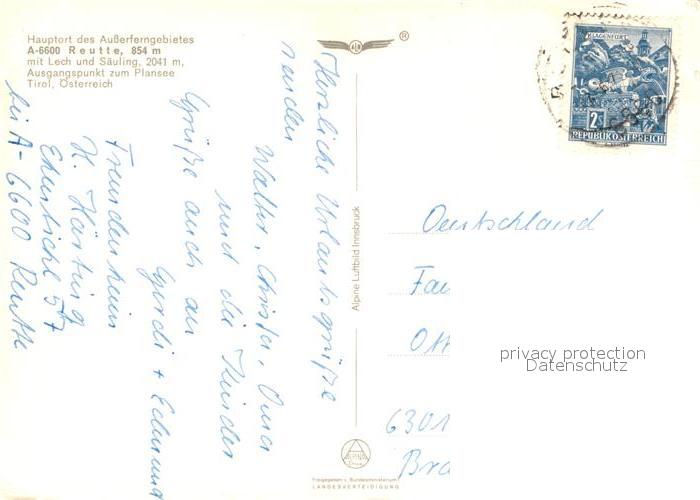 Hauptort des Außerferngebietes
A-6600 Reutte, 854 m
mit Lech und Säuling, 2041 m,
Ausgangspunkt zum Plansee
Tirol, Österreich
Herzliche Urlaubsgrüße
senden
Walter, Christa, Oma
und die Kinder
Grüße auch an
Gerdi + Edmund
Fremdenheim
K. Härting
57
bei A-6600 Reutte
Alpine Luftbild Innsbruck
ALPINE
Freigegeben v. Bundesministerium
LANDESVERTEIDIGUNG
®
KLAGENFURT
2
REPUBLIK ÖSTERREICH
Deutschland
Fa
Ott
6301
privacy protection
Datenschutz